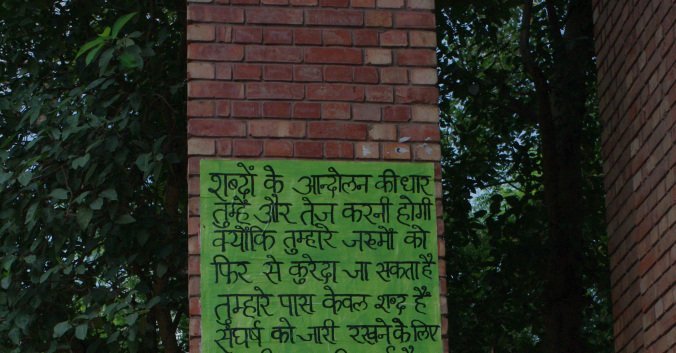 शब्दों के आन्दोलन की धार
तुम्हें और तेज़ करनी होगी
क्योंकि तुम्हारे जख्मों को
फिर से कुरेदा जा सकता है
तुम्हारे पास केवल शब्द हैं
संघर्ष को जारी रखने के लिए